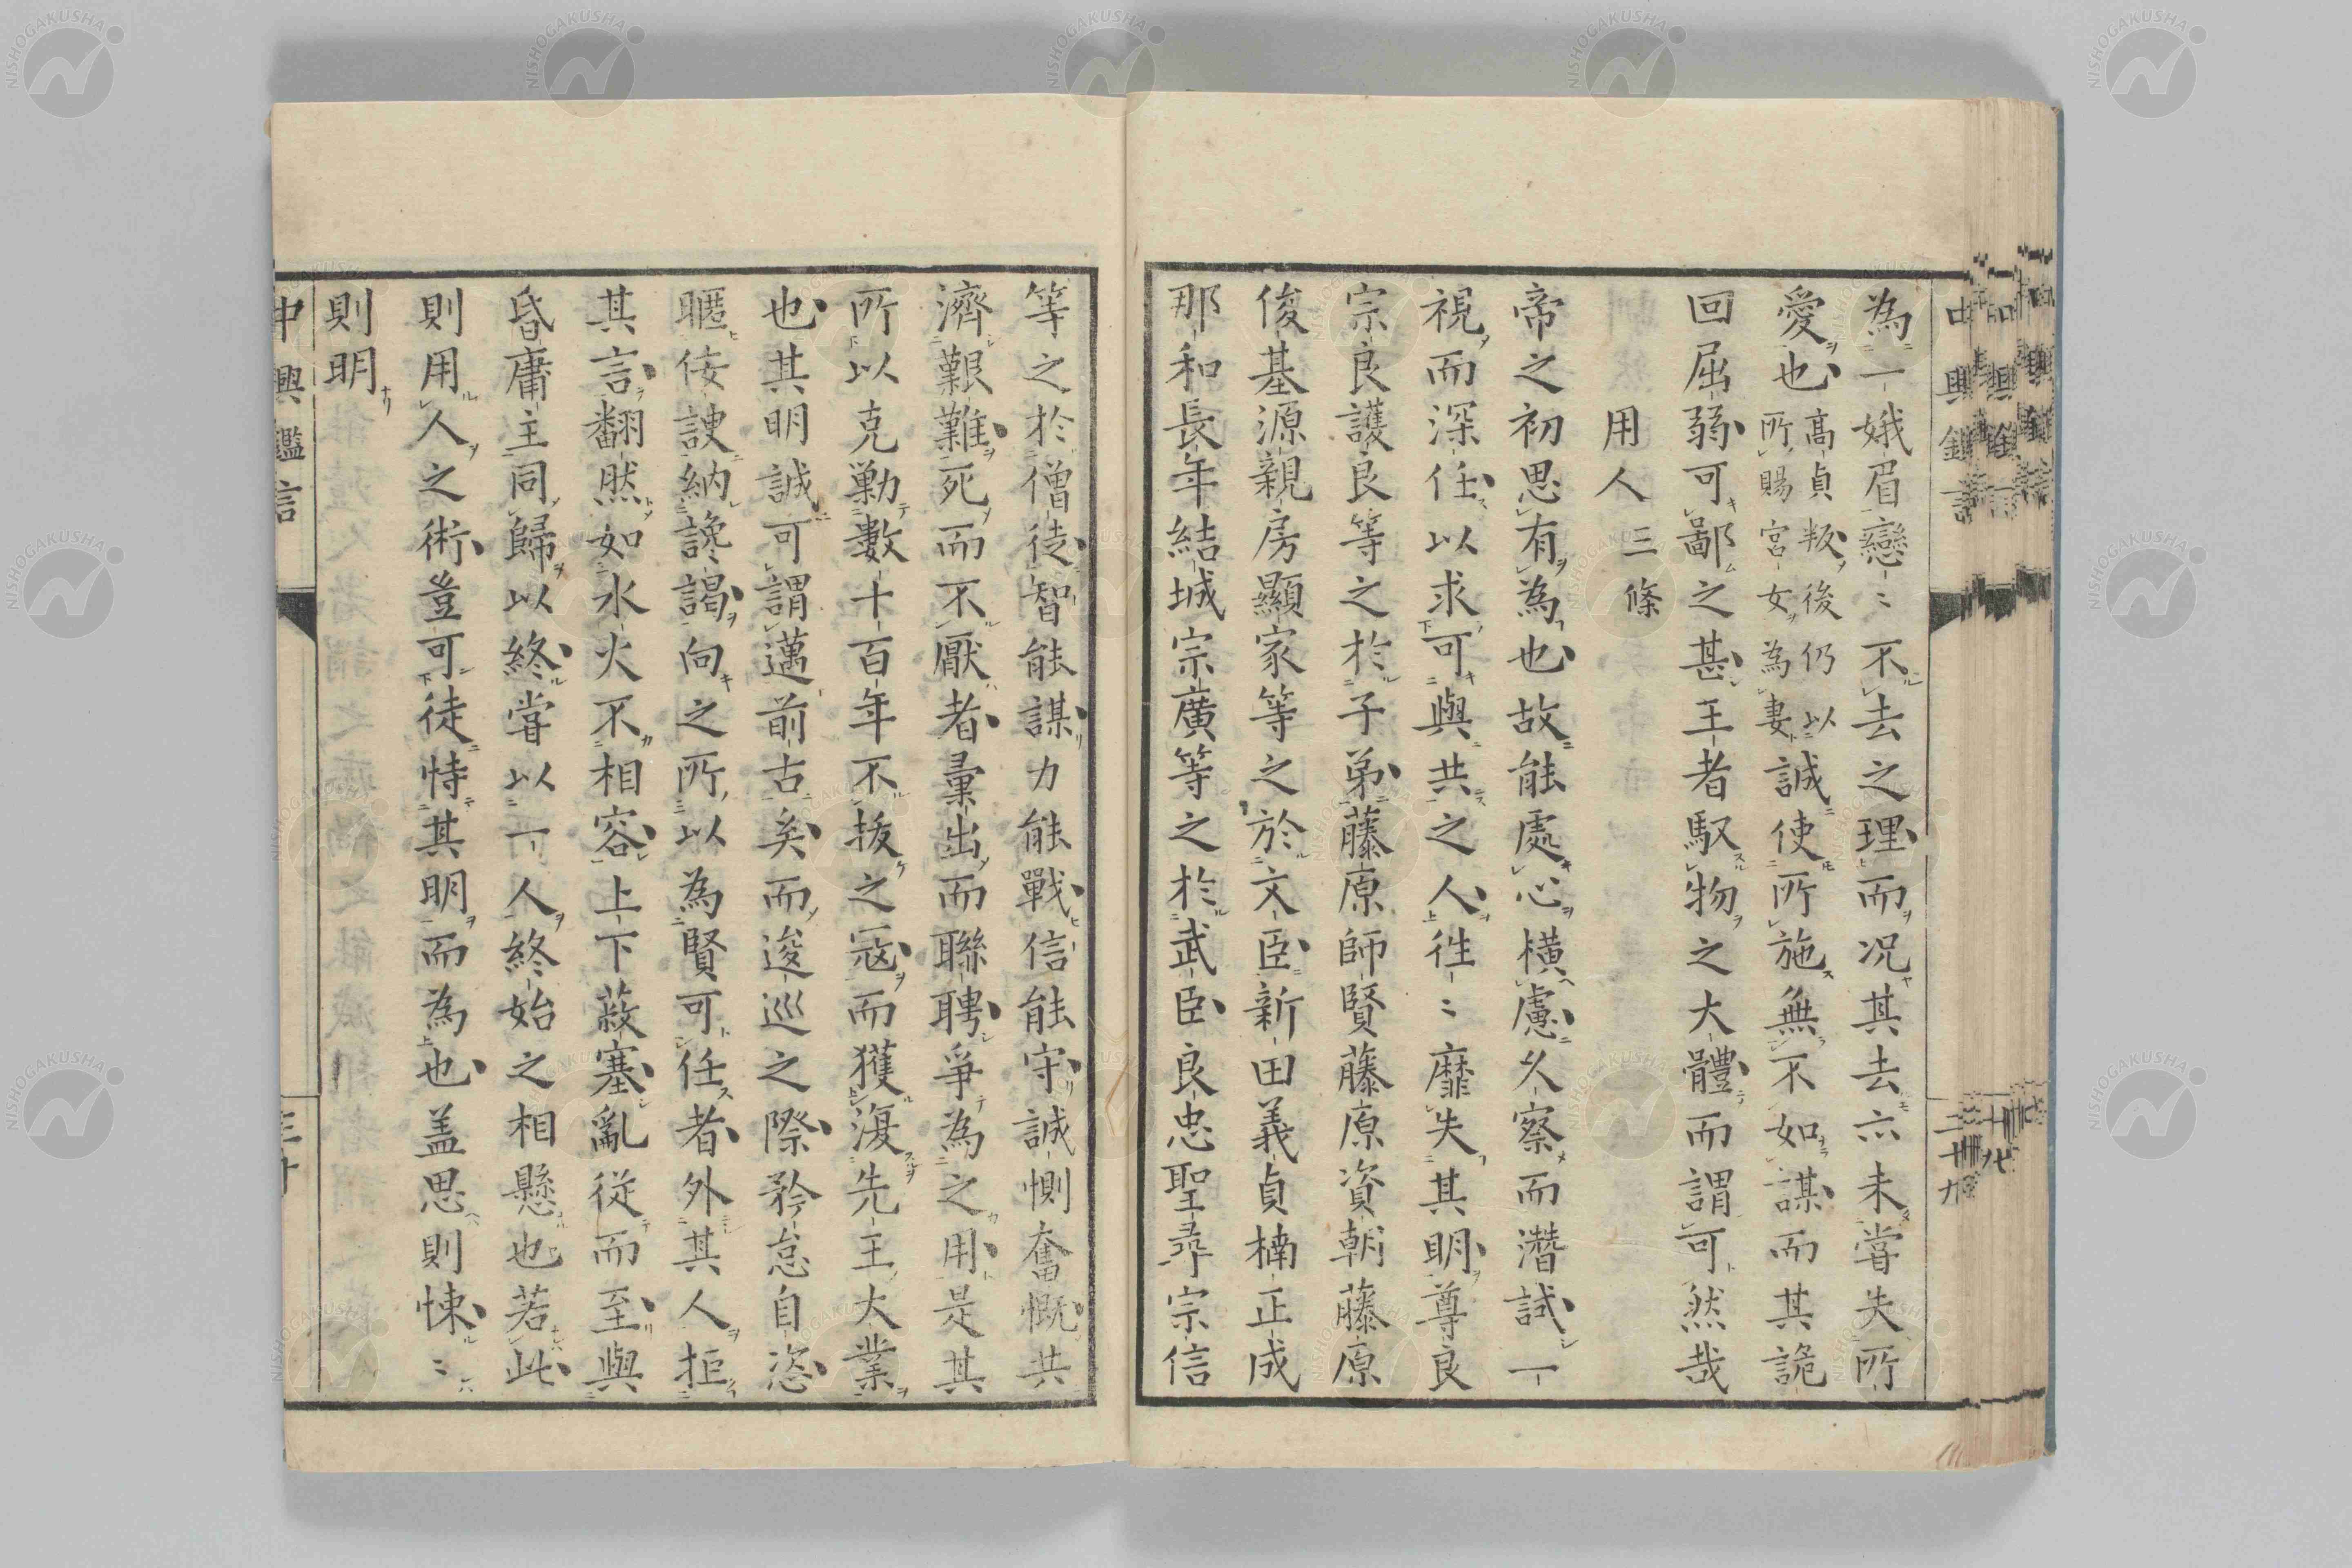 為一娥眉戀〻不去之理而况其去亦未嘗失所
愛也高貞叛後仍以所賜宮女為妻誠使所施無不如謀而其詭
回屈弱可鄙之甚王者馭物之大體而謂可然哉
用人三條
帝之初思有為也故能處心橫慮久察而潛試一
視而深任以求可與共之人往〻靡失其明尊良
宗良護良等之於子弟藤原師賢藤原資朝藤原
俊基源親房顯家等之於文臣新田義貞楠正成
那和長年結城宗廣等之於武臣良忠聖尋宗信
等之於僧徒智能謀力能戰信能守誠惻奮慨共
濟艱難死而不厭者彙出而聯聘爭為之用是其
所以克勦數十百年不拔之寇而獲復先王大業
也其明誠可謂邁前古矣而逡巡之際矜怠自恣
暱佞諛納讒謁向之所以為賢可任者外其人拒
其言翻然如水火不相容上下蔽塞亂從而至與
昏庸主同歸以終嘗以一人終始之相懸也若此
則用人之術豈可徒恃其明而為也盖思則悚〻
則明
中興鑑言